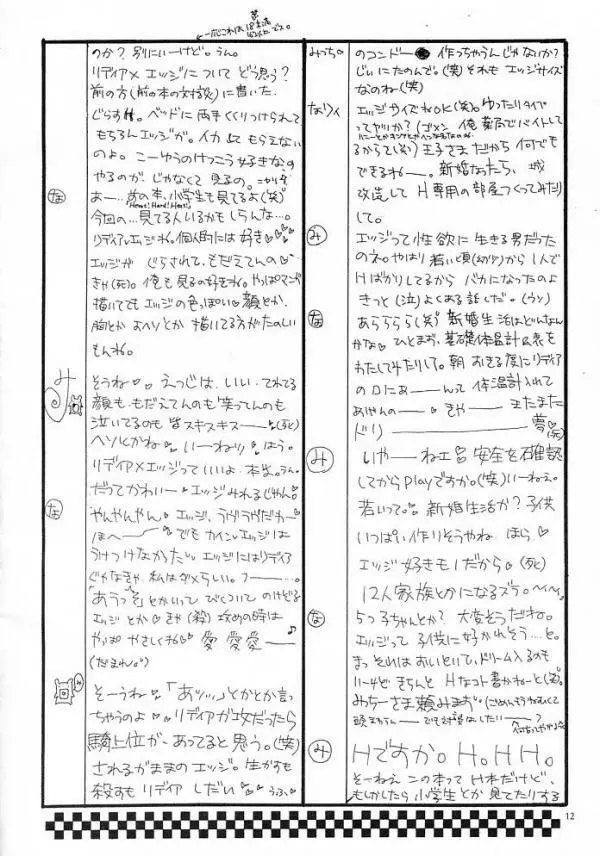 一応これは18才未満禁止です。
のか？別にいーけど。うん。
リディア×エッジについて どう思う？
前の方(前の本の対談)に書いた
じらすけ。ベッドに両手くくりつけられて
もちろんエッジが。イカせてもらえない
のよ。こーゆうのけっこう好きなの
やるのが、じゃなくて見るの。
な あー…前の本、小学生も見てるよ(笑)
今回の…見てる人いるかもしらんな…。
リディア×エッジね。個人的には好き♡
エッジが じらされて、もだえてんの
きゃ(死)。俺も見るの好きね。やっぱマンガ
描いてても エッジの色っぽい♡顔とか、
胸とか おヘソとか 描いてる方がたのしい
もんね。
み そうね♡♡ えっじは、いい、てれてる
顔も、もだえてんのも 笑ってんのも
泣いてるのも 皆スキスキスー(死)
ヘソとかね。いーねッ♡ ほう。
リディア×エッジっていいよ、本当。うん。
だってかわいー♡エッジみれるじゃん。
な やんやんやん♡ エッジ、
ほへーー♡ でも カイン×エッジは
うけつけなかったい。エッジにはリディア
じゃなきゃ 私はダメらしい。フー…。
「あうっ」とかいって びくついてのけぞる
エッジとか♡きゃ(殺) 攻めの時は
やっぱ やさしくね♡ 愛 愛 愛
(だまれ。)
み そーうね♡「あッ」とかとか言っ
ちゃうのよ リディアが攻だったら
騎上位が、あってると思う。(笑)
されるがままのエッジ。生かすも
殺すも リディア しだい♡♡ うふ♡
みっち。 のコンドー● 作っちゃうんじゃないか？
じいにたのんで。(笑) それも エッジサイズ
なのね(笑)
なりィ エッジサイズね OK(笑)。ゆったりタイプ
ってヤツか？(ゴメン 俺 薬局でバイトして
るからで(笑)) 王子さまだから 何でも
できるねー。新婚なったら、城
改造して H専用の部屋つくってみたり
して。
み エッジって性欲に 生きる男だった
のネ。やはり若い頃から1人で
Hばかりしてるから バカになったのよ
きっと(泣) よくある話しだ。(ウン)
な あらららら(笑) 新婚生活はどんなん
かな♡ ひとまず、基礎体温計&表を
わたしてみたりして。朝 おきる度にリディア
の口にあーーんって 体温計入れて
あげんのー♡ きゃー また また
ドリーーー夢(死)
み いやーねェ 安全を確認
してから playですか。(笑) いーねぇ。
若いって。新婚生活か？子供
いっぱい 作りそうやね ほら♡
エッジ 好きもノだから♡ (死)
12人家族とかになるズラ。へへへ。
な 5つ子ちゃんとか？ 大変そうだねェ。
エッジって 子供に好かれそう…と。
まっ それはおいといて、ドリーム入るのも
いーけど きちんと Hなコト書かねーと(笑)。
みちーさま頼みます。
み Hですか。H。HH。
そーねえ この本って H本だけど、
もしかしたら 小学生とか 見てたりする
12